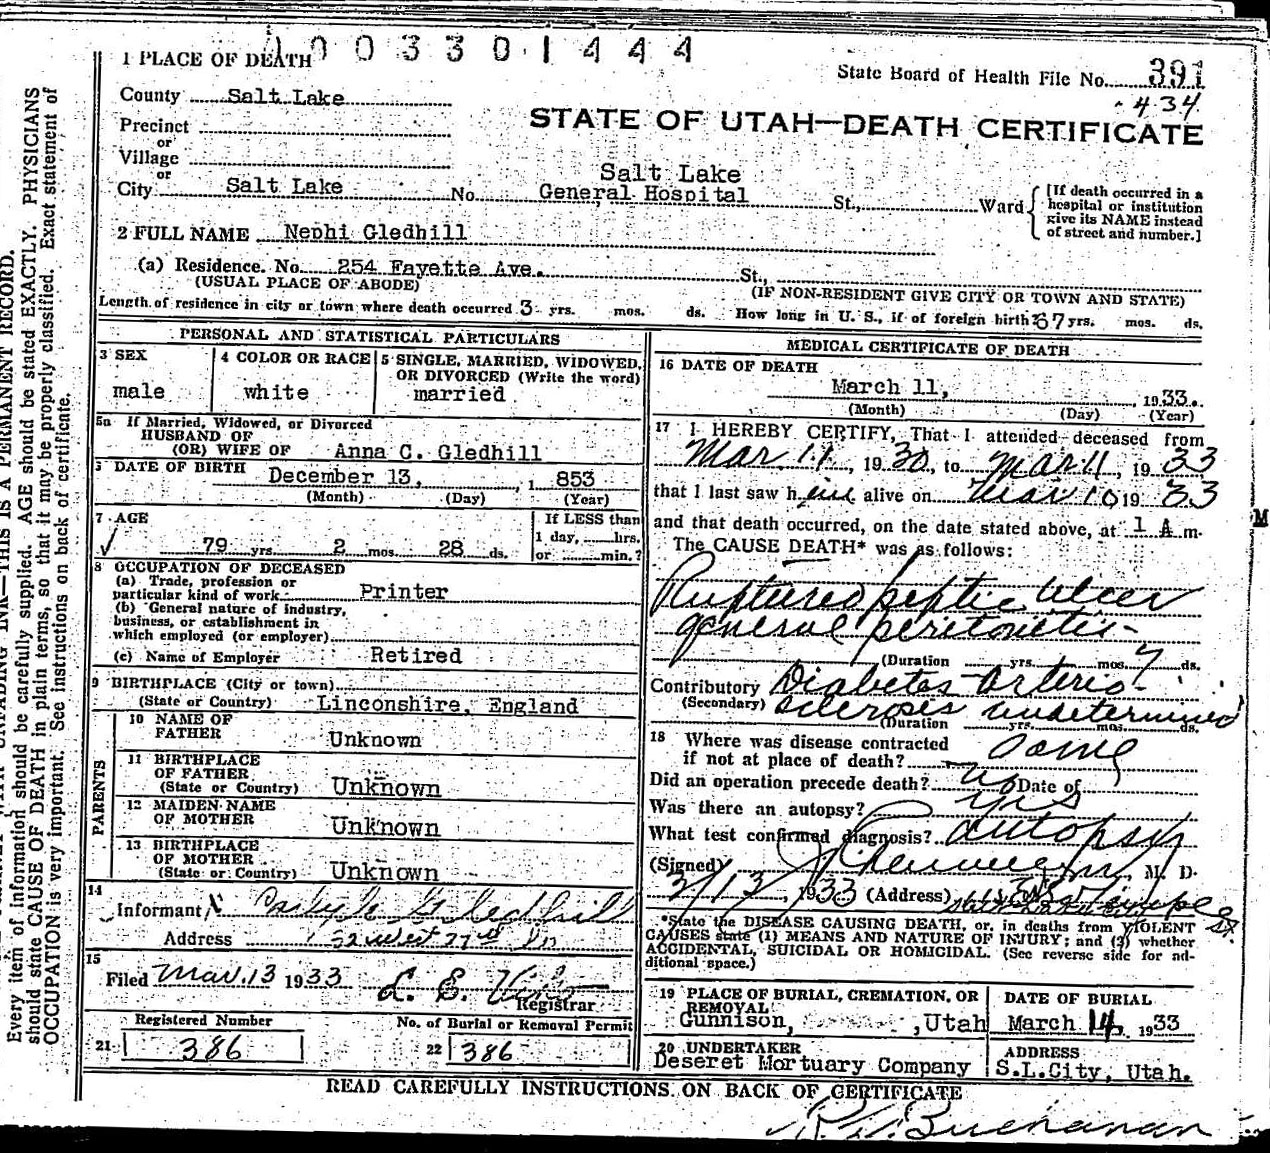 1003301444
1 PLACE OF DEATH
State Board of Health File No. 391
434
County Salt Lake
STATE OF UTAH—DEATH CERTIFICATE
Precinct
or
Village
or
City Salt Lake No. Salt Lake General Hospital St., Ward
[If death occurred in a
hospital or institution
give its NAME instead
of street and number.]
2 FULL NAME Nephi Gledhill
(a) Residence. No. 254 Fayette Ave. St.,
(USUAL PLACE OF ABODE) (IF NON-RESIDENT GIVE CITY OR TOWN AND STATE)
Length of residence in city or town where death occurred 3 yrs. mos. ds. How long in U. S., if of foreign birth? 67 yrs. mos. ds.
PERSONAL AND STATISTICAL PARTICULARS
3 SEX
male
4 COLOR OR RACE
white
5 SINGLE, MARRIED, WIDOWED,
OR DIVORCED (Write the word)
married
5a If Married, Widowed, or Divorced
HUSBAND OF
(OR) WIFE OF Anna C. Gledhill
DATE OF BIRTH
December 13, 1 853
(Month) (Day) (Year)
7 AGE
79 yrs. 2 mos. 28 ds.
If LESS than
1 day, hrs.
or min.?
8 OCCUPATION OF DECEASED
(a) Trade, profession or
particular kind of work Printer
(b) General nature of industry,
business, or establishment in
which employed (or employer)
(c) Name of Employer Retired
9 BIRTHPLACE (City or town)
(State or Country) Linconshire, England
PARENTS
10 NAME OF
FATHER Unknown
11 BIRTHPLACE
OF FATHER
(State or Country) Unknown
12 MAIDEN NAME
OF MOTHER Unknown
13 BIRTHPLACE
OF MOTHER
(State or Country) Unknown
14
Informant Gledhill
Address
15
Filed Mar. 13 1933 L. E.
Registrar
Registered Number
21 386
No. of Burial or Removal Permit
22 386
MEDICAL CERTIFICATE OF DEATH
16 DATE OF DEATH
March 11, 1933.
(Month) (Day) (Year)
17 I HEREBY CERTIFY, That I attended deceased from
Mar 11, 1930, to Mar 11, 1933
that I last saw him alive on Mar 10 1933
and that death occurred, on the date stated above, at 1 A m.
The CAUSE DEATH* was as follows:
Ruptured peptic ulcer
general peritonitis
(Duration yrs. mos. 7 ds.
Contributory Diabetes Arterio-
(Secondary) sclerosis undetermined
(Duration yrs. mos. ds.
18 Where was disease contracted
if not at place of death?
Did an operation precede death? no Date of
Was there an autopsy? yes
What test confirmed diagnosis? autopsy
(Signed) M. D.
3/13, 1933 (Address)
*State the DISEASE CAUSING DEATH, or, in deaths from VIOLENT
CAUSES state (1) MEANS AND NATURE OF INJURY; and (2) whether
ACCIDENTAL, SUICIDAL OR HOMICIDAL. (See reverse side for ad-
ditional space.)
19 PLACE OF BURIAL, CREMATION, OR
REMOVAL
Gunnison, , Utah
DATE OF BURIAL
March 14, 1933
20 UNDERTAKER
Deseret Mortuary Company
ADDRESS
S.L.City, Utah.
READ CAREFULLY INSTRUCTIONS ON BACK OF CERTIFICATE
Buchanan
THIS IS A PERMANENT RECORD.
Every item of information should be carefully supplied. AGE should be stated EXACTLY. PHYSICIANS
should state CAUSE OF DEATH in plain terms, so that it may be properly classified. Exact statement of
OCCUPATION is very important. See instructions on back of certificate.
M